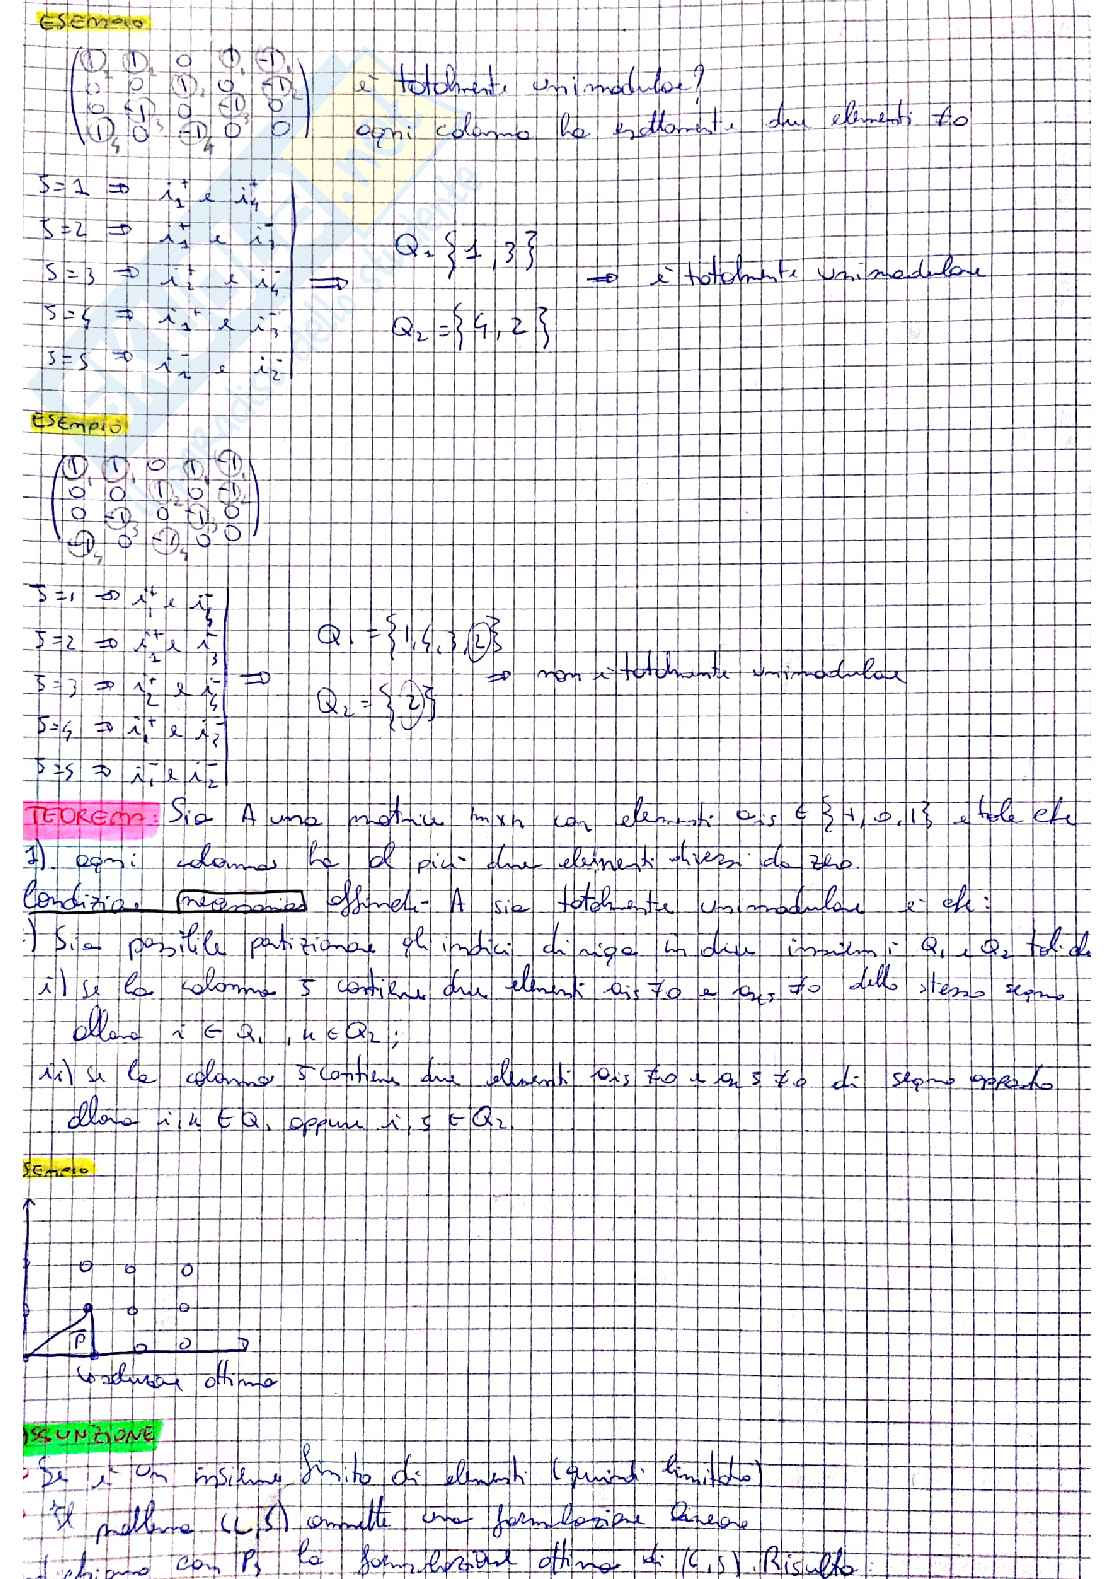 ESEMPIO
1 1 0 1 -1
0 0 1 0 -1 è totalmente unimodulare?
0 -1 0 -1 0
1 0 -1 0 0 ogni colonna ha esattamente due elementi ≠0
J=1 ⇒ i₁⁺ e i₄⁺
J=2 ⇒ i₁⁺ e i₃⁻ Q₁ {1,3}
J=3 ⇒ i₂⁺ e i₄⁻ ⇒ ⇒ è totalmente unimodulare
J=4 ⇒ i₁⁺ e i₃⁻ Q₂ = {4,2}
J=5 ⇒ i₁⁻ e i₂⁻
ESEMPIO
1 1 0 1 -1
0 0 1 0 -1
0 -1 0 -1 0
-1 0 -1 0 0
J=1 ⇒ i₁⁺ e i₄⁻
J=2 ⇒ i₁⁺ e i₃⁻ Q₁ = {1,4,3,2}
J=3 ⇒ i₂⁺ e i₄⁻ ⇒ ⇒ non è totalmente unimodulare
J=4 ⇒ i₁⁺ e i₃⁻ Q₂ = {2}
J=5 ⇒ i₁⁻ e i₂⁻
TEOREMA: Sia A una matrice mxn con elementi aij ∈ {-1,0,1} e tale che
1). ogni colonna ha al più due elementi diversi da zero.
Condizione necessaria affinché A sia totalmente unimodulare è che:
.) Sia possibile partizionare gli indici di riga in due insiemi Q₁ e Q₂ tali che
i) se la colonna J contiene due elementi aij ≠0 e akj ≠0 dello stesso segno
allora i ∈ Q₁, k ∈ Q₂;
ii) se la colonna J contiene due elementi aij ≠0 e akj ≠0 di segno opposto
allora i,k ∈ Q₁ oppure i,j ∈ Q₂.
SEMPIO
P
soluzione ottima
SSUNZIONE
Se è un insieme finito di elementi (quindi limitato)
Il problema (C,S) ammette una formulazione lineare
chiamo con Ps la formulazione ottima di (C,S). Risulta: